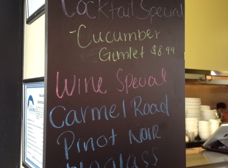 Cocktail Special
- Cucumber
Gimlet $8.99
Wine Special
Carmel Road
Pinot Noir
glass